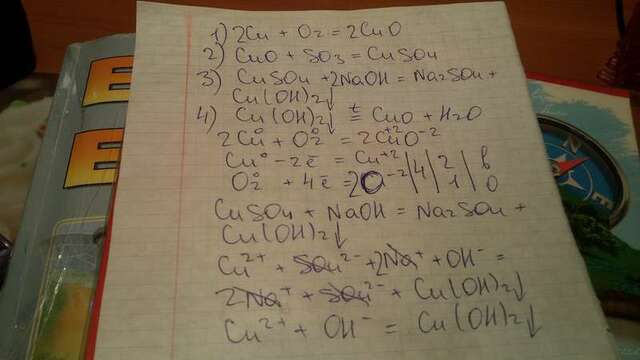 1) 2Cu + O₂ = 2CuO
2) CuO + SO₃ = CuSO₄
3) CuSO₄ + 2NaOH = Na₂SO₄ +
Cu(OH)₂↓
4) Cu(OH)₂↓ =ᵗ CuO + H₂O
2Cu⁰ + O₂⁰ = 2Cu⁺²O⁻²
Cu⁰ - 2ē = Cu⁺² | 4 | 2 | в
O₂⁰ + 4ē = 2O⁻² | 1 | о
CuSO₄ + NaOH = Na₂SO₄ +
Cu(OH)₂↓
Cu²⁺ + SO₄²⁻ + 2Na⁺ + OH⁻ =
2Na⁺ + SO₄²⁻ + Cu(OH)₂↓
Cu²⁺ + OH⁻ = Cu(OH)₂↓